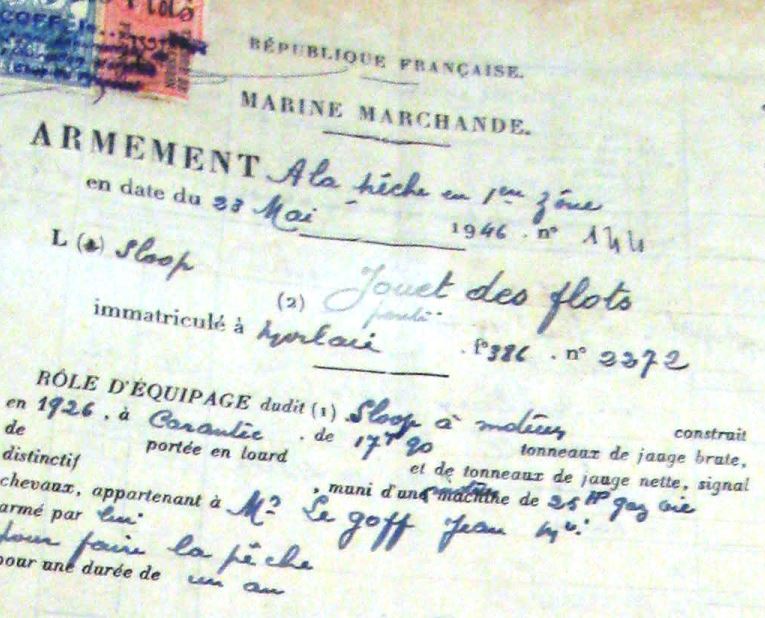 RÉPUBLIQUE FRANÇAISE.
MARINE MARCHANDE.
ARMEMENT A la pêche en 1ère zône
en date du 23 Mai 1946. n° 144
L (1) Sloop
(2) Jouet des flots
immatriculé à Morlaix . f° 386 . n° 2272
RÔLE D'ÉQUIPAGE dudit (1) Sloop à moteur construit
en 1926, à Carantec . de 17 Tx 90 tonneaux de jauge brute,
de portée en lourd et de tonneaux de jauge nette, signal
distinctif , muni d'une machine de 25 HP gaz oil
chevaux, appartenant à Mr Le goff Jean
armé par lui
pour faire la pêche
pour une durée de un an